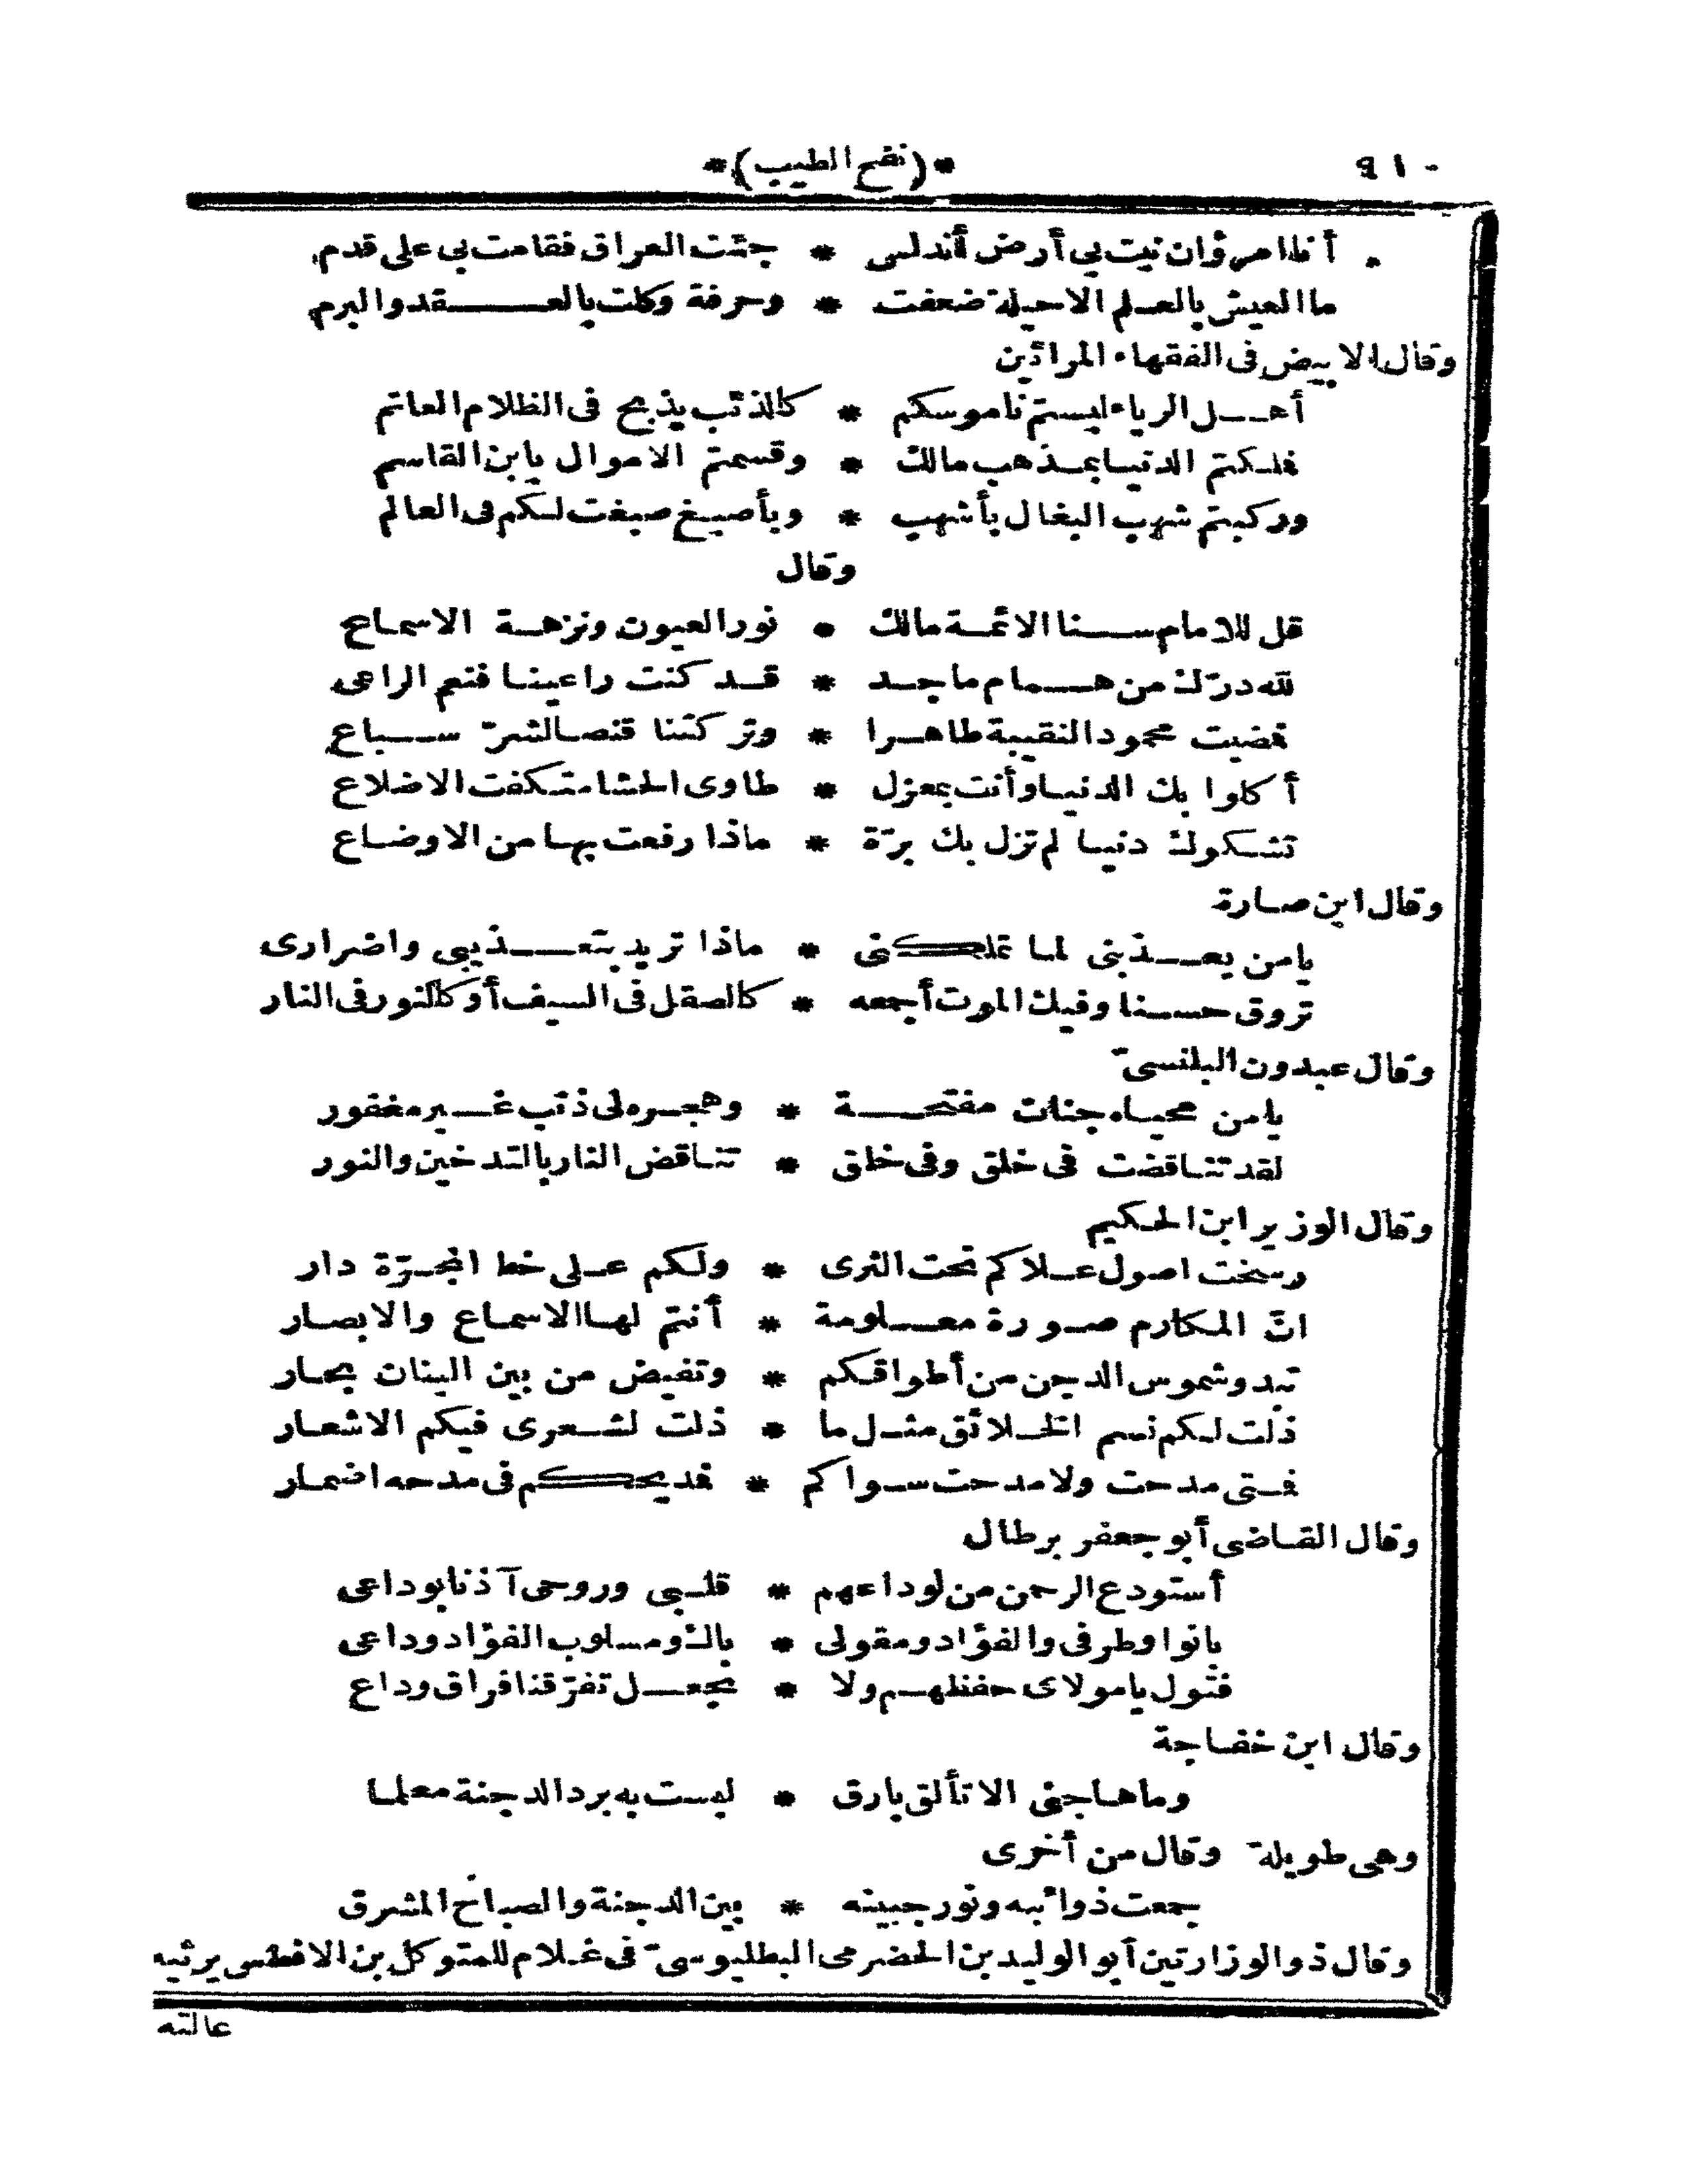 ٩١٠ *(نفح الطيب)*
أنا امرؤ ان نبت بى أرض أندلس * جئت العراق فقامت بى على قدم
ما العيش بالعلم الا حيلة ضعفت * وحرفة وكلت بالعقد والبرم
وقال الابيض فى الفقهاء المرائين
أهل الرياء لبستم ناموسكم * كالذئب يدلج فى الظلام العاتم
فلكتم الدنيا بمذهب مالك * وقسمتم الاموال يابن القاسم
وركبتم شهب البغال بأشهب * وبأصبغ صبغت لكم فى العالم
وقال
قل للامام سنا الائمة مالك * نور العيون ونزهة الاسماع
لله درّك من همام ماجد * قد كنت راعينا فنعم الراعى
فضيت محمود النقيبة طاهرا * وتركتنا قنصا لشرّ سباع
أكلوا بك الدنيا وأنت بمعزل * طاوى الحشا متكفت الاضلاع
تشكوك دنيا لم تزل بك برّة * ماذا رفعت بها من الاوضاع
وقال ابن صارة
يا من يعذبنى لما تملكنى * ماذا تريد بتعذيبى واضرارى
تروق حسنا وفيك الموت أجمعه * كالصقل فى السيف أو كالنور فى النار
وقال عبدون البلنسىّ
يا من محياه جنات مفتحة * وهجره لى ذنب غير مغفور
لقد تناقضت فى خلق وفى خلق * تناقض النار بالتدخين والنور
وقال الوزير ابن الحكيم
رسخت اصول علاكم تحت الثرى * ولكم على خط المجرّة دار
انّ المكارم صورة معلومة * أنتم لها الاسماع والابصار
تبدو شموس الدجن من أطواقكم * وتفيض من بين البنان بحار
ذلت لكم نسم الخلائق مثل ما * ذلت لشعرى فيكم الاشعار
فمتى مدحت ولا مدحت سواكم * فمديحكم فى مدحه اضمار
وقال القاضى أبو جعفر برطال
أستودع الرحمن من لوداعهم * قلبى وروحى آذنا بوداعى
بانوا وطرفى والفؤاد ومقولى * باك ومسلوب الفؤاد وداعى
فتول يا مولاى حفظهم ولا * تجعل تفرّقنا فراق وداع
وقال ابن خفاجة
وما هاجنى الا تألق بارق * لبست به برد الدجنة معلما
وهى طويلة وقال من أخرى
جمعت ذوائبه ونور جبينه * بين الدجنة والصباح المشرق
وقال ذو الوزارتين أبو الوليد بن الحضرمى البطليوسىّ فى غلام للمتوكل بن الافطس يرثيه
عالته